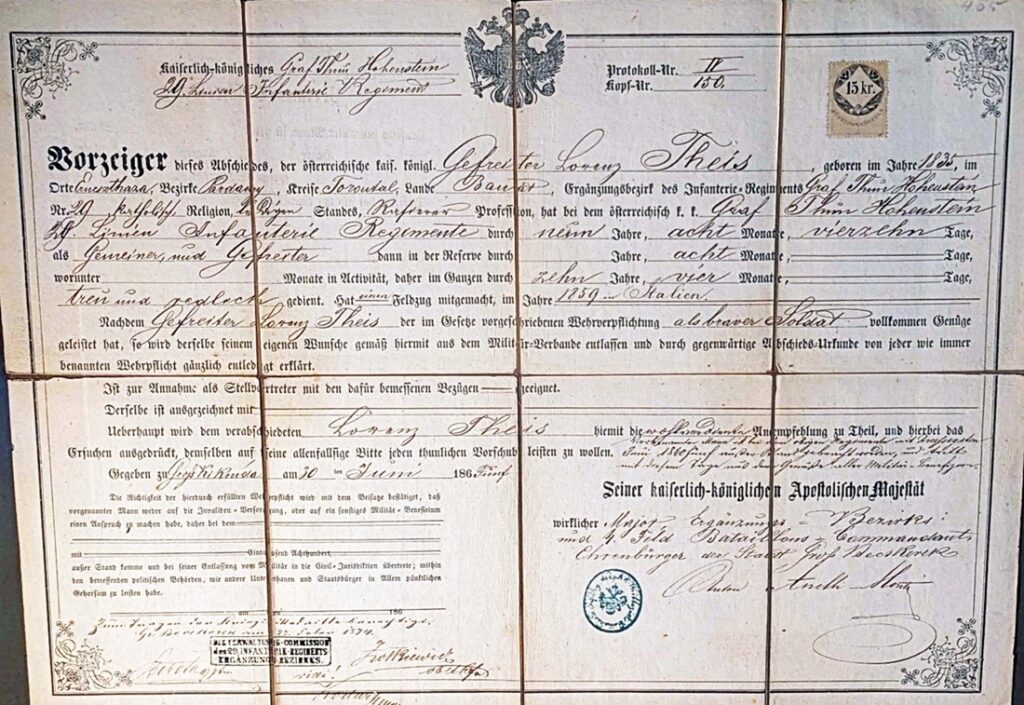 405
Kaiserlich-königliches Graf Thun Hohenstein
29. Linien Infanterie Regiment
Protokoll-Nr. IV
Kopf-Nr. 150.
15 kr.
Vorzeiger dieses Abschiedes, der österreichische kais. königl. Gefreiter Lorenz Theis, geboren im Jahre 1835 im
Orte Ernesthaza, Bezirke Pardany, Kreise Torontal, Lande Banat, Ergänzungsbezirk des Infanterie-Regiments Graf Thun Hohenstein
Nr. 29 katholisch. Religion, ledigen Standes, Profession, hat bei dem österreichisch k. k. Graf Thun Hohenstein
29 Linien Infanterie Regimente durch neun Jahre, acht Monate, vierzehn Tage,
als Gemeiner, und Gefreiter dann in der Reserve durch Jahre, acht Monate, Tage,
worunter Monate in Activität, daher im Ganzen durch zehn Jahre, vier Monate, Tage,
treu und redlich gedient. Hat einen Feldzug mitgemacht, im Jahre 1859 in Italien.
Nachdem Gefreiter Lorenz Theis der im Gesetze vorgeschriebenen Wehrverpflichtung als braver Soldat vollkommen Genüge
geleistet hat, so wird derselbe seinem eigenen Wunsche gemäß hiermit aus dem Militär-Verbande entlassen und durch gegenwärtige Abschieds-Urkunde von jeder wie immer
benannten Wehrpflicht gänzlich entledigt erklärt.
Ist zur Annahme als Stellvertreter mit den dafür bemessenen Bezügen geeignet.
Derselbe ist ausgezeichnet mit
Ueberhaupt wird dem verabschiedeten Lorenz Theis hiemit die wohlverdiente Anempfehlung zu Theil, und hierbei das
Ersuchen ausgedrückt, demselben auf seine allenfallsige Bitte jeden thunlichen Vorschub leisten zu wollen.
Gegeben zu Groß Kikinda am 30 ten Juni 186 fünf
Die Richtigkeit der hierdurch erfüllten Wehrpflicht wird mit dem Beisatze bestätigt, daß
vorgenannter Mann weder auf die Invaliden-Versorgung, oder auf ein sonstiges Militär-Benefizium
einen Anspruch zu machen habe, daher bei dem
mit Eintausend Achthundert,
außer Stand komme und bei seiner Entlassung vom Militär in die Civil-Jurisdiction übertrete; mithin von
den betreffenden politischen Behörden, wie andere Unterthanen und Staatsbürger in Allem pünktlichen
Gehorsam zu leisten habe.
am 186
Seiner kaiserlich-königlichen Apostolischen Majestät
wirklicher Major Ergänzungs-Bezirks-
und 4. Feld Bataillons-Commandant
Ehrenbürger der Stadt Groß Becskerek
Zum Tragen der Kriegs Medaille berechtigt.
1874.
DIE VERWALTUNGS-COMMISSION
des 29. INFANTERIE-REGIMENTS
ERGÄNZUNGS-BEZIRKS.